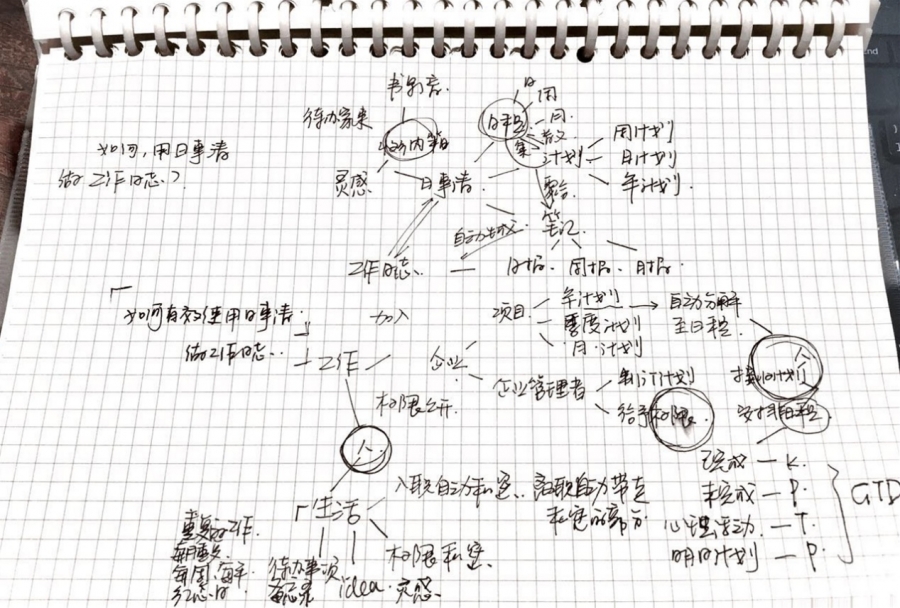 书影音
待办
日程
日
周
月
散文
集
计划
周计划
月计划
年计划
如何,用日事清
做工作日志?
灵感
日事清
聚合
笔记
自动生成
工作日志
日报、周报、月报
「如何有效使用日事清
做工作日志」
加入
项目
年计划
季度计划
月计划
自动分解
至日程
工作
企业
企业管理者
制订计划
给予权限
人
计划
安排日程
权限公开
人
已完成 — K.
未完成 — P.
心理活动 — T.
明日计划 — P.
GTD
「生活
入职自动私密、离职自动带走
私密的部分
权限私密、
重复的工作、
每周、每年
纪念日
待办事项
备忘录
idea、灵感、